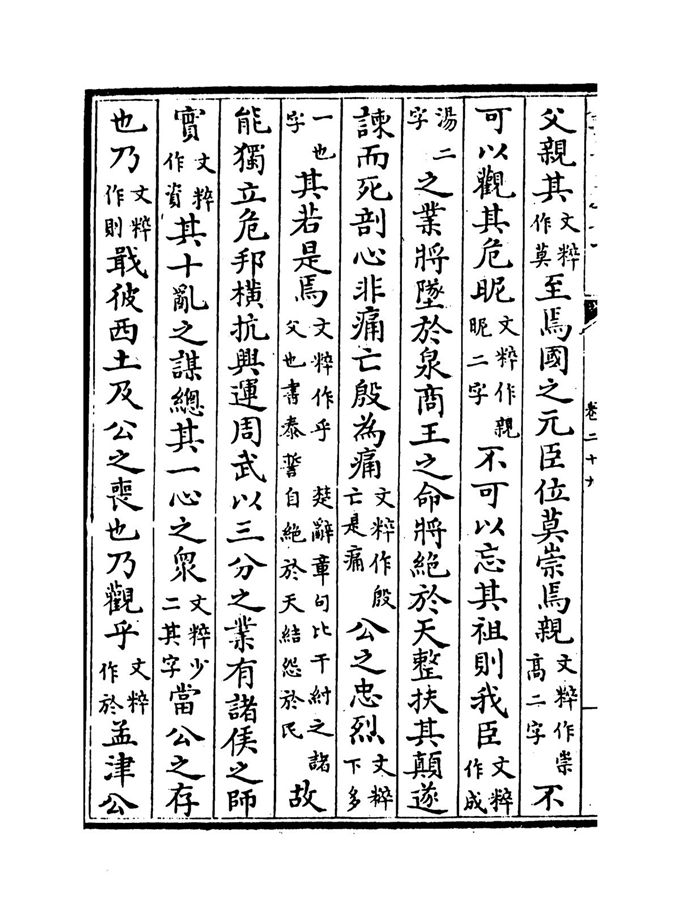 父親其文粹作莫至焉國之元臣位莫崇焉親文粹作崇高二字不
可以觀其危昵文粹作親昵二字不可以忘其祖則我臣文粹作成
湯二字之業將墜於泉商王之命將絕於天整扶其顛遂
諫而死剖心非痛亡殷為痛文粹作殷亡是痛公之忠烈文粹下多
一也字其若是焉文粹作乎 楚辭章句比干紂之諸父也書泰誓自絕於天結怨於民故
能獨立危邦橫抗興運周武以三分之業有諸侯之師
實文粹作資其十亂之謀總其一心之衆文粹少二其字當公之存
也乃文粹作則戢彼西土及公之喪也乃觀乎文粹作於孟津公
卷二十九